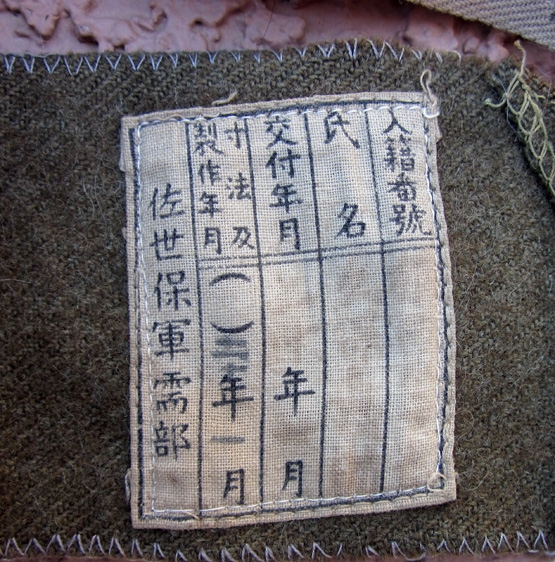 入籍番號
氏名
交付年月
年 月
寸法及
製作年月
( ) 年一月
佐世保軍需部